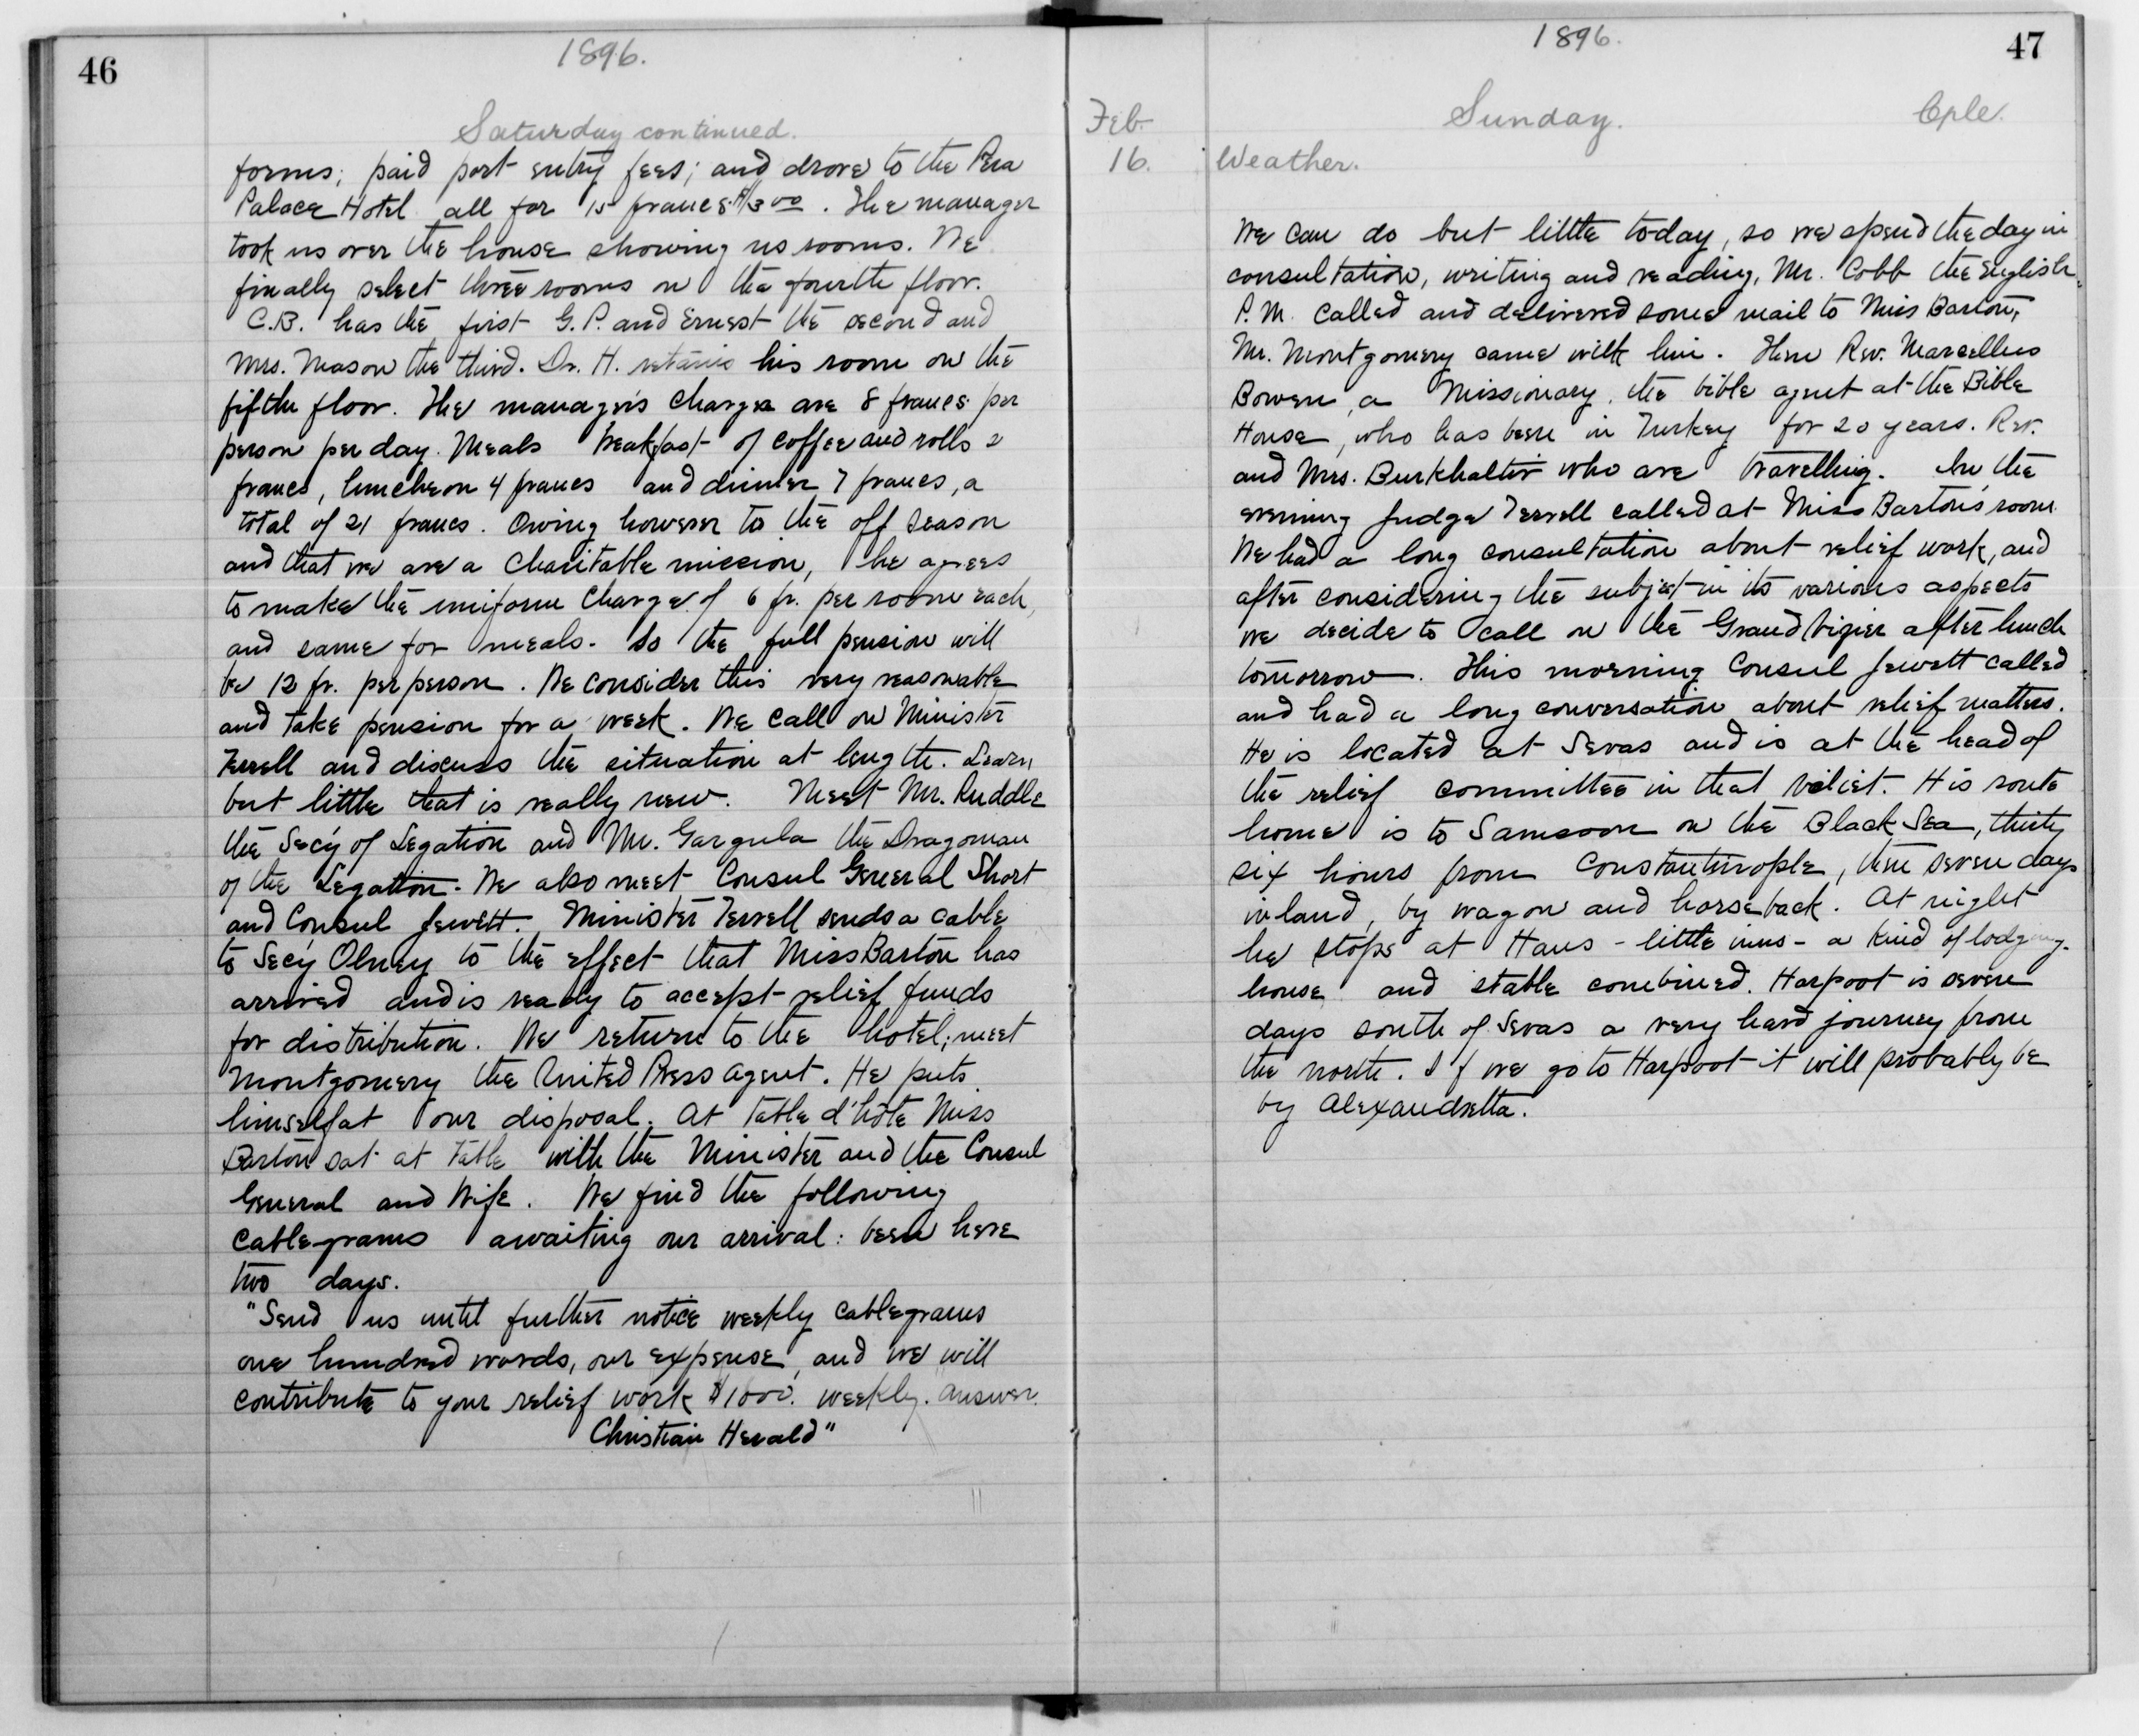 46
1896.
Saturday continued.
forms; paid port entry fees; and drove to the Pera
Palace Hotel all for 15 francs $3 00. The manager
took us over the house showing us rooms. We
finally select three rooms on the fourth floor.
C.B. has the first G.P. and Ernest the second and
Mrs. Mason the third. Dr. H. retains his room on the
fifth floor. The manager's charges are 8 francs per
person per day. Meals breakfast of coffee and rolls 2
francs, luncheon 4 francs and dinner 7 francs, a
total of 21 francs. Owing however to the off season
and that we are a Charitable mission, he agrees
to make the uniform charge of 6 fr. per room each,
and same for meals. So the full pension will
be 12 fr. per person. We consider this very reasonable
and take pension for a week. We call on Minister
Terrell and discuss the situation at length. Learn
but little that is really new. Meet Mr. Ruddle
the Sec'y of Legation and Mr. Gargula the Dragoman
of the Legation. We also meet Consul General Short
and Consul Jewett. Minister Terrell sends a cable
to Sec'y Olney to the effect that Miss Barton has
arrived and is ready to accept relief funds
for distribution. We return to the hotel; meet
Montgomery the United Press agent. He puts
himself at our disposal. At table d'hôte Miss
Barton sat at table with the Minister and the Consul
General and Wife. We find the following
Cablegrams awaiting our arrival: been here
two days.
"Send us until further notice weekly Cablegrams
one hundred words, our expense, and we will
contribute to your relief work $1000. weekly. Answer.
Christian Herald"
47
1896.
Feb. Sunday. Cple.
16. Weather.
We can do but little today, so we spend the day in
consultation, writing and reading, Mr. Cobb the English
P.M. called and delivered some mail to Miss Barton,
Mr. Montgomery came with him. Then Rev. Marcellus
Bowen, a Missionary, the bible agent at the Bible
House, who has been in Turkey for 20 years. Rev.
and Mrs. Burkhalter who are travelling. In the
evening Judge Terrell called at Miss Barton's room
We had a long consultation about relief work, and
after considering the subject in its various aspects
we decide to call on the Grand Vizier after lunch
tomorrow. This morning Consul Jewett called
and had a long conversation about relief matters.
He is located at Sevas and is at the head of
the relief committee in that viliet. His route
home is to Samsoon on the Black Sea, thirty
six hours from Constantinople, then seven days
inland, by wagon and horseback. At night
he stops at Hans - little inns - a kind of lodging-
house and stable combined. Harpoot is seven
days south of Sevas a very hard journey from
the north. If we go to Harpoot it will probably be
by Alexandretta.